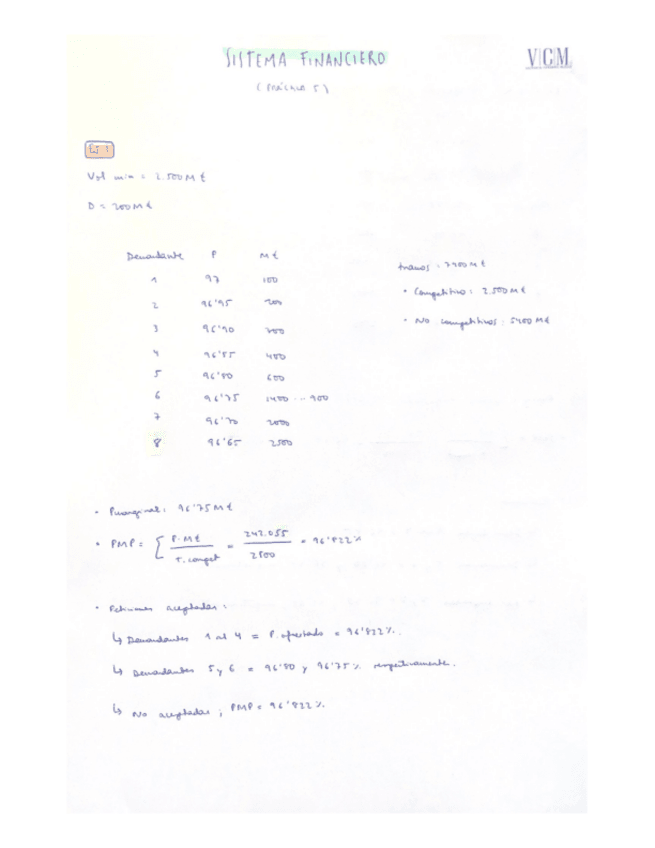 SISTEMA FINANCIERO
VCM
(Práctica 5)
Ej 1
Vol min = 2.500 M €
D = 200 M €
Demandante P M €
1 97 100
2 96'95 200
3 96'90 300
4 96'85 400
5 96'80 600
6 96'75 1400 ... 900
7 96'70 2000
8 96'65 2500
tramos : 7900 M €
• Competitivo : 2.500 M €
• No competitivos : 5400 M €
• Pmarginal : 96'75 M €
• PMP = P. M € / T. compet = 242.055 / 2500 = 96'822 %
• Peticiones aceptadas :
↳ Demandantes 1 al 4 = P. ofertado = 96'822 %.
↳ Demandantes 5 y 6 = 96'80 y 96'75 % respectivamente.
↳ No aceptadas ; PMP = 96'822 %.